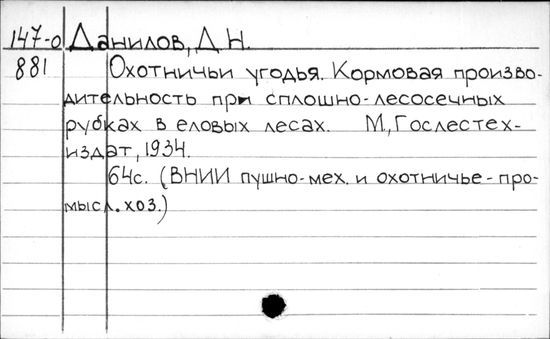 147-0 Данилов, Д.Н.
881 Охотничьи угодья. Кормовая произво-
дительность при сплошно-лесосечных
рубках в еловых лесах. М, Гослестех-
издат, 1934.
64с. (ВНИИ пушно-мех. и охотничье-про-
мысл. хоз.)